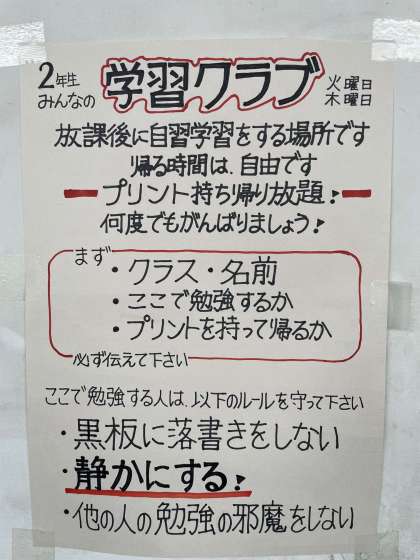 2年生 みんなの 学習クラブ 火曜日 木曜日
放課後に自習学習をする場所です
帰る時間は、自由です
プリント持ち帰り放題！
何度でもがんばりましょう！
まず
・クラス・名前
・ここで勉強するか
・プリントを持って帰るか
必ず伝えて下さい
ここで勉強する人は、以下のルールを守って下さい
・黒板に落書きをしない
・静かにする！
・他の人の勉強の邪魔をしない